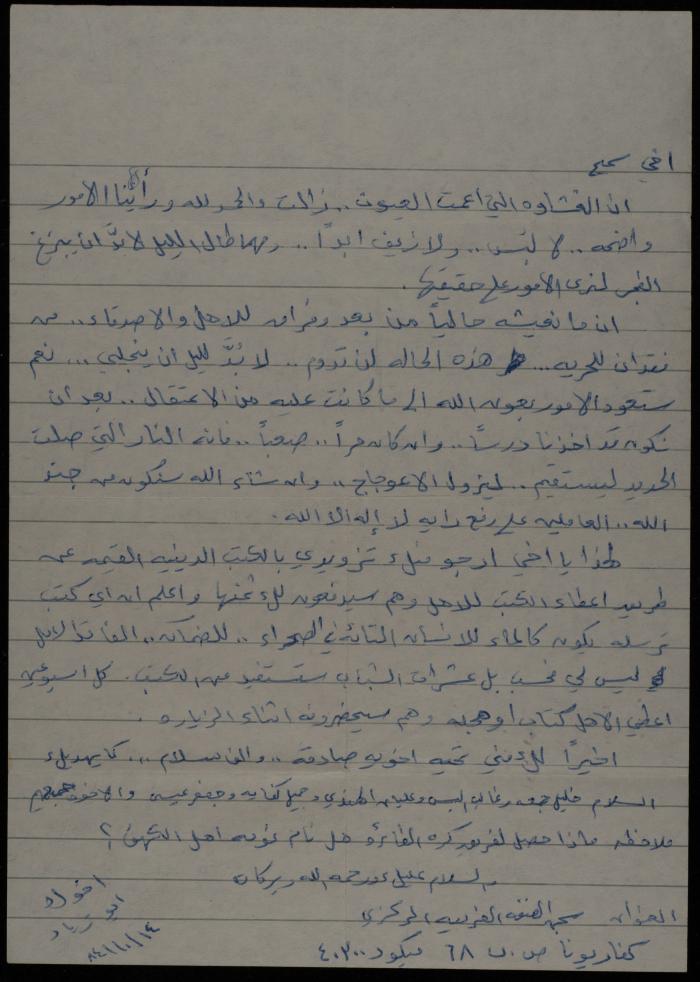 اخي سميح
ان الغشاوه التي اعمت العيون .. زالت والحمد لله ورأينا الامور
واضحه .. لا لبس .. ولا زيف ابداً .. ومهما طال الليل لا بدَّ ان يبزغ
الفجر لنرى الامور على حقيقتها .
ان ما نعيشه حالياً من بعد وفراق للاهل والاصدقاء .. من
فقدان للحريه ... هذه الحاله لن تدوم .. لا بُدَّ لليل ان ينجلي ... نعم
ستعود الامور بعون الله الى ما كانت عليه من الاعتقال .. بعد ان
نكون قد اخذنا درساً .. وان كان مراً .. صعباً .. فانه النار التي صلت
الحديد ليستقيم .. ليزول الاعوجاج .. وان شاء الله سنكون من جند
الله .. العاملين على رفع راية لا إله الا الله .
لهذا يا اخي ارجو منك تزويدي بالكتب الدينيه القيمه عن
طريق اعطاء الكتب للاهل وهم سيدفعون لك ثمنها واعلم ان اي كتاب
ترسله يكون كالماء للانسان التائه في الصحراء .. للضمآن ..
ليس لي فحسب بل عشرات الشباب ستستفيد من الكتب . كل اسبوعين
اعطي الاهل كتاب او مجله وهم سيحضرونه اثناء الزياره .
اخيراً لك مني تحيه اخويه صادقه .. والف سلام ... كما يهديك
السلام خليل جمعه وغالب وعليان الهندي وجميل وجعفر عيسى والاخوه جميعهم
ملاحظه ماذا حصل لفريق كرة الطائره هل نام نومه اهل الكهف ؟
والسلام عليكم ورحمه الله وبركاته
اخوك
ابو زياد
٨٤/١٠/١٤
العنوان سجن الضفه الغربيه المركزي
كفاريونا ص.ب ٦٨ ميكود ٤٠٣٠٠